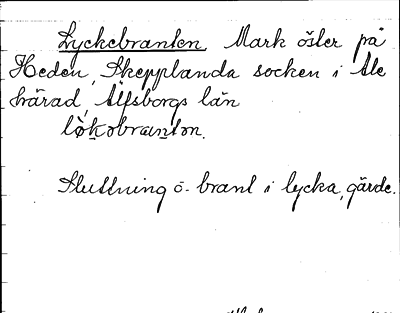 Lyckebranten. Mark öster på
Heden, Skepplanda socken i Ale
härad, Älfsborgs län
lø̀kəbrantən.
Sluttning ö. brant i lycka, gärde.